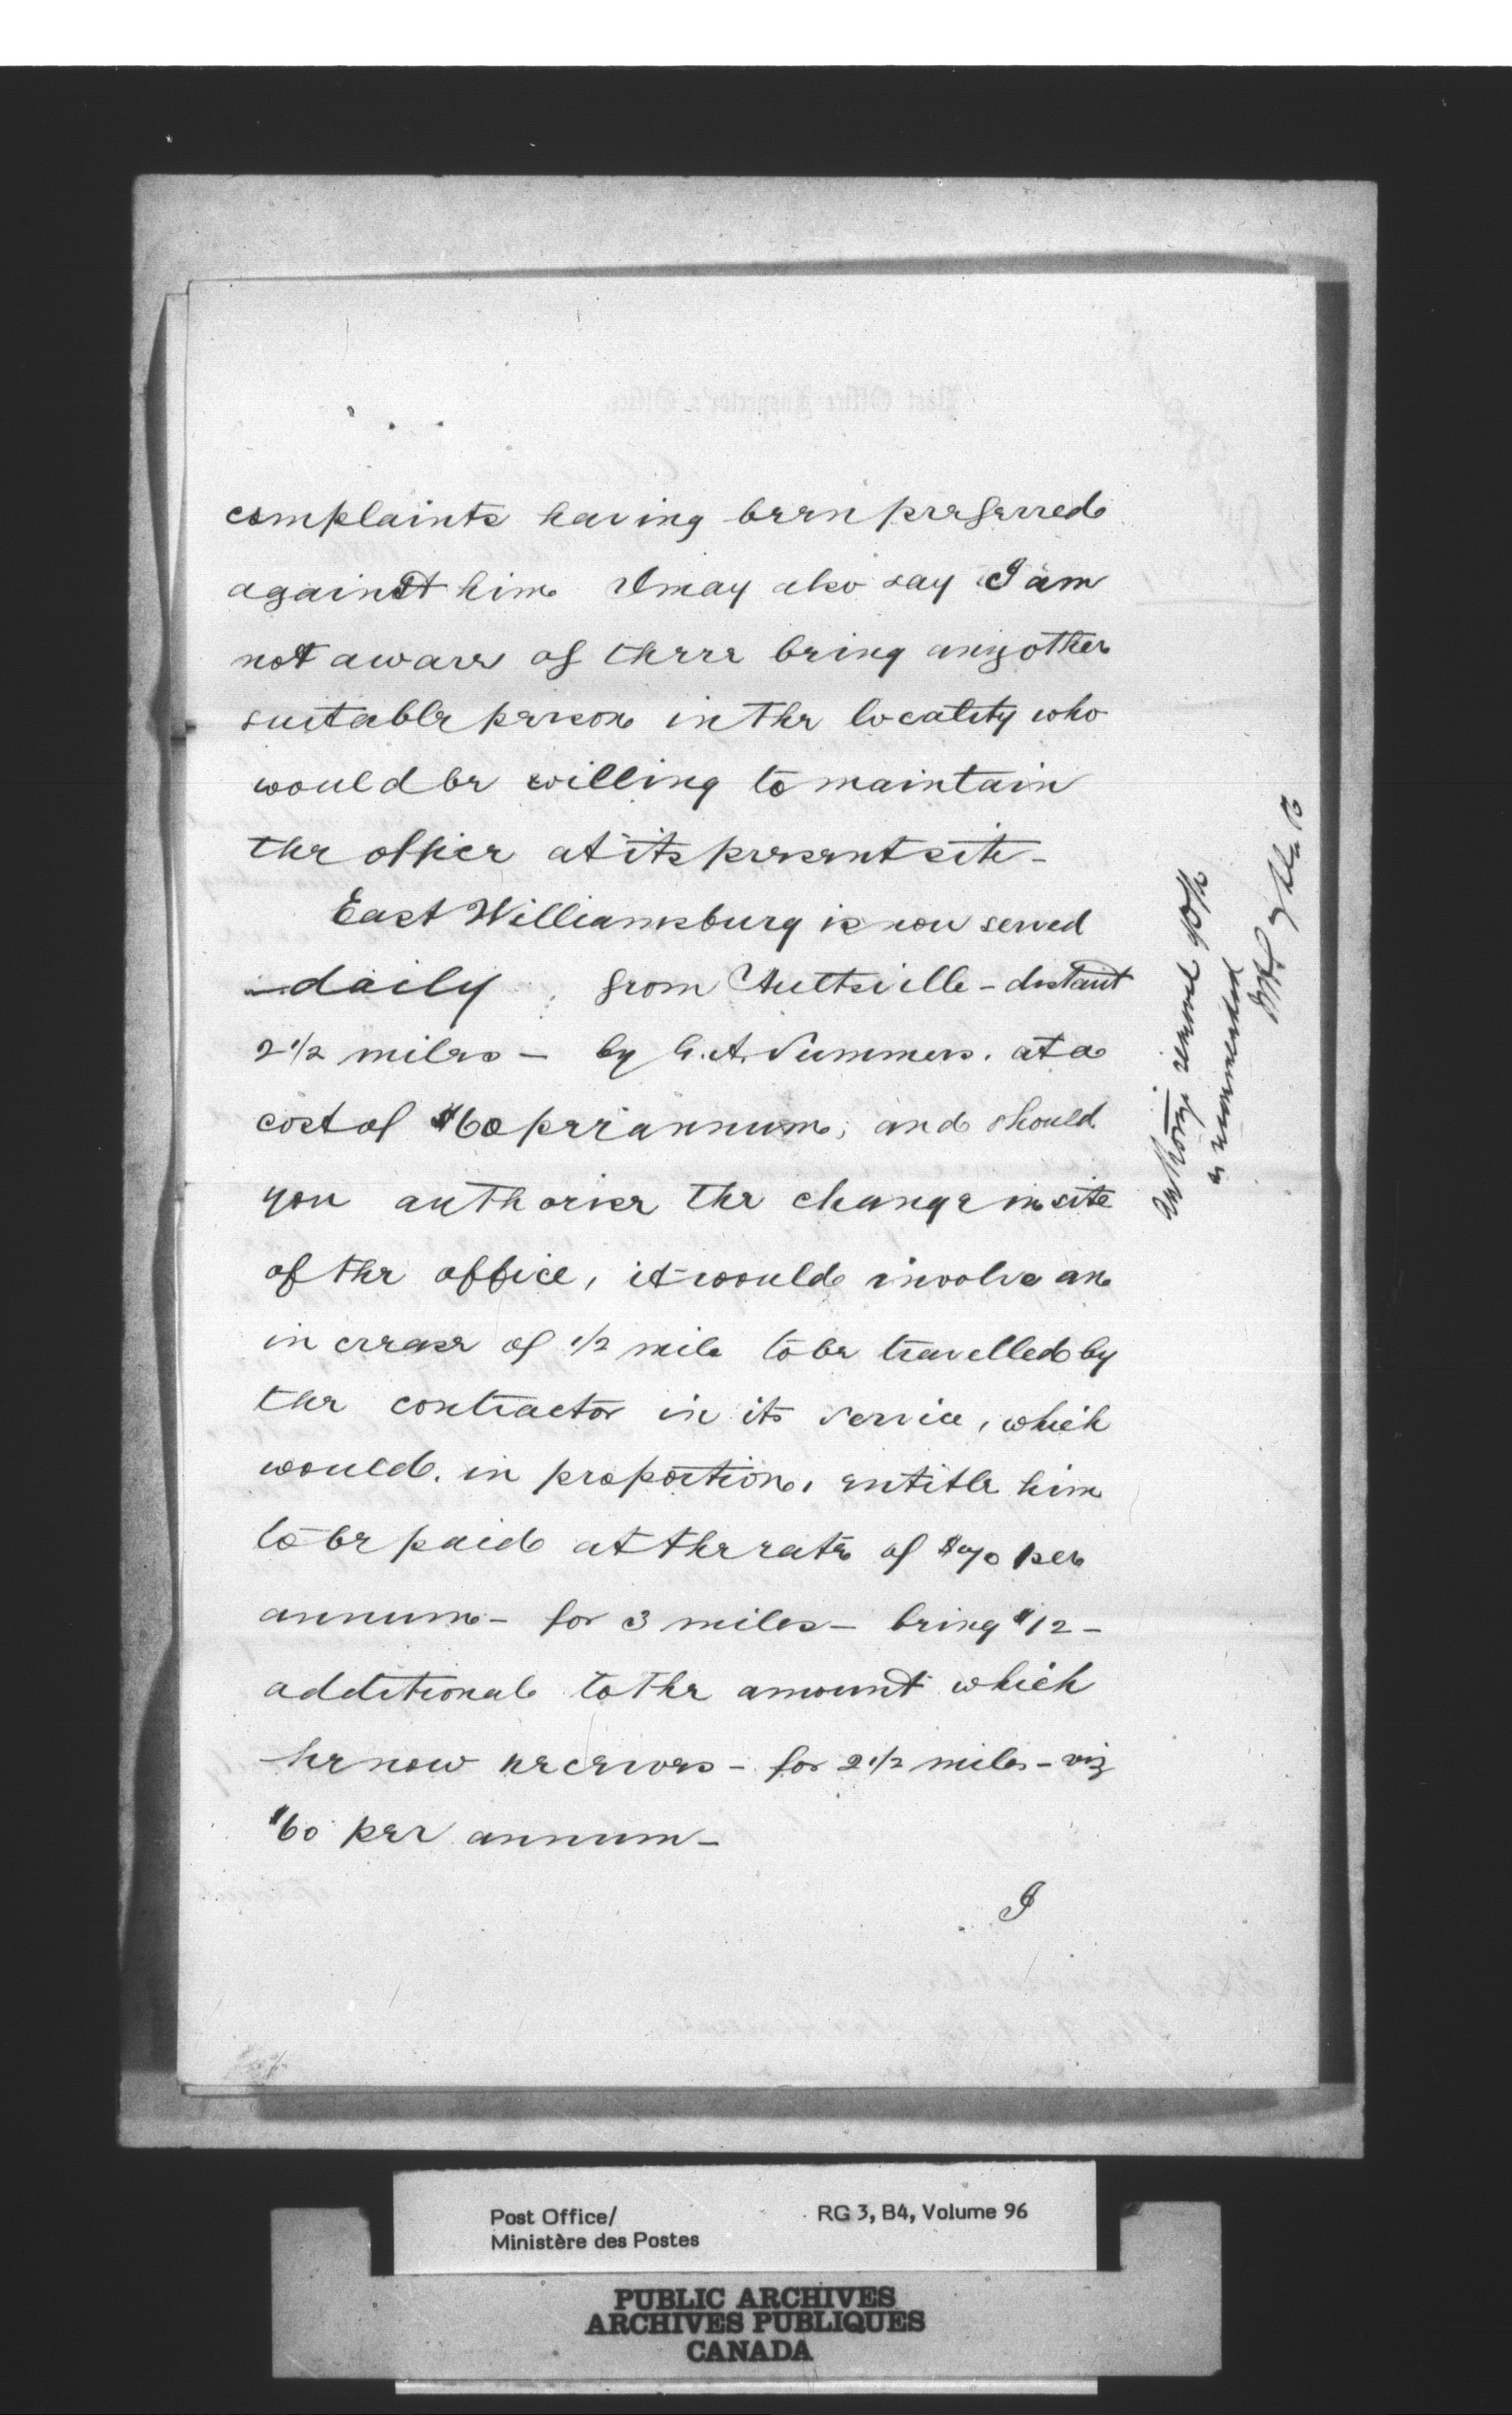 complaints having been preferred
against him I may also say I am
not aware of there being any other
suitable person in the locality who
would be willing to maintain
the office at its present site -
East Williamsburg is now served
daily from Aultsville - distant
2 1/2 miles - by G. A. Summers. at a
cost of $60 per annum, and should
you authorise the change in site
of the office, it would involve an
increase of 1/2 mile to be travelled by
the contractor in its service, which
would, in proportion, entitle him
to be paid at the rate of $72 per
annum - for 3 miles - being $12 -
additional to the amount which
he now receives - for 2 1/2 miles - viz
$60 per annum -
I
Authorize removal of
as recommended
Post Office/
Ministère des Postes
RG 3, B4, Volume 96
PUBLIC ARCHIVES
ARCHIVES PUBLIQUES
CANADA